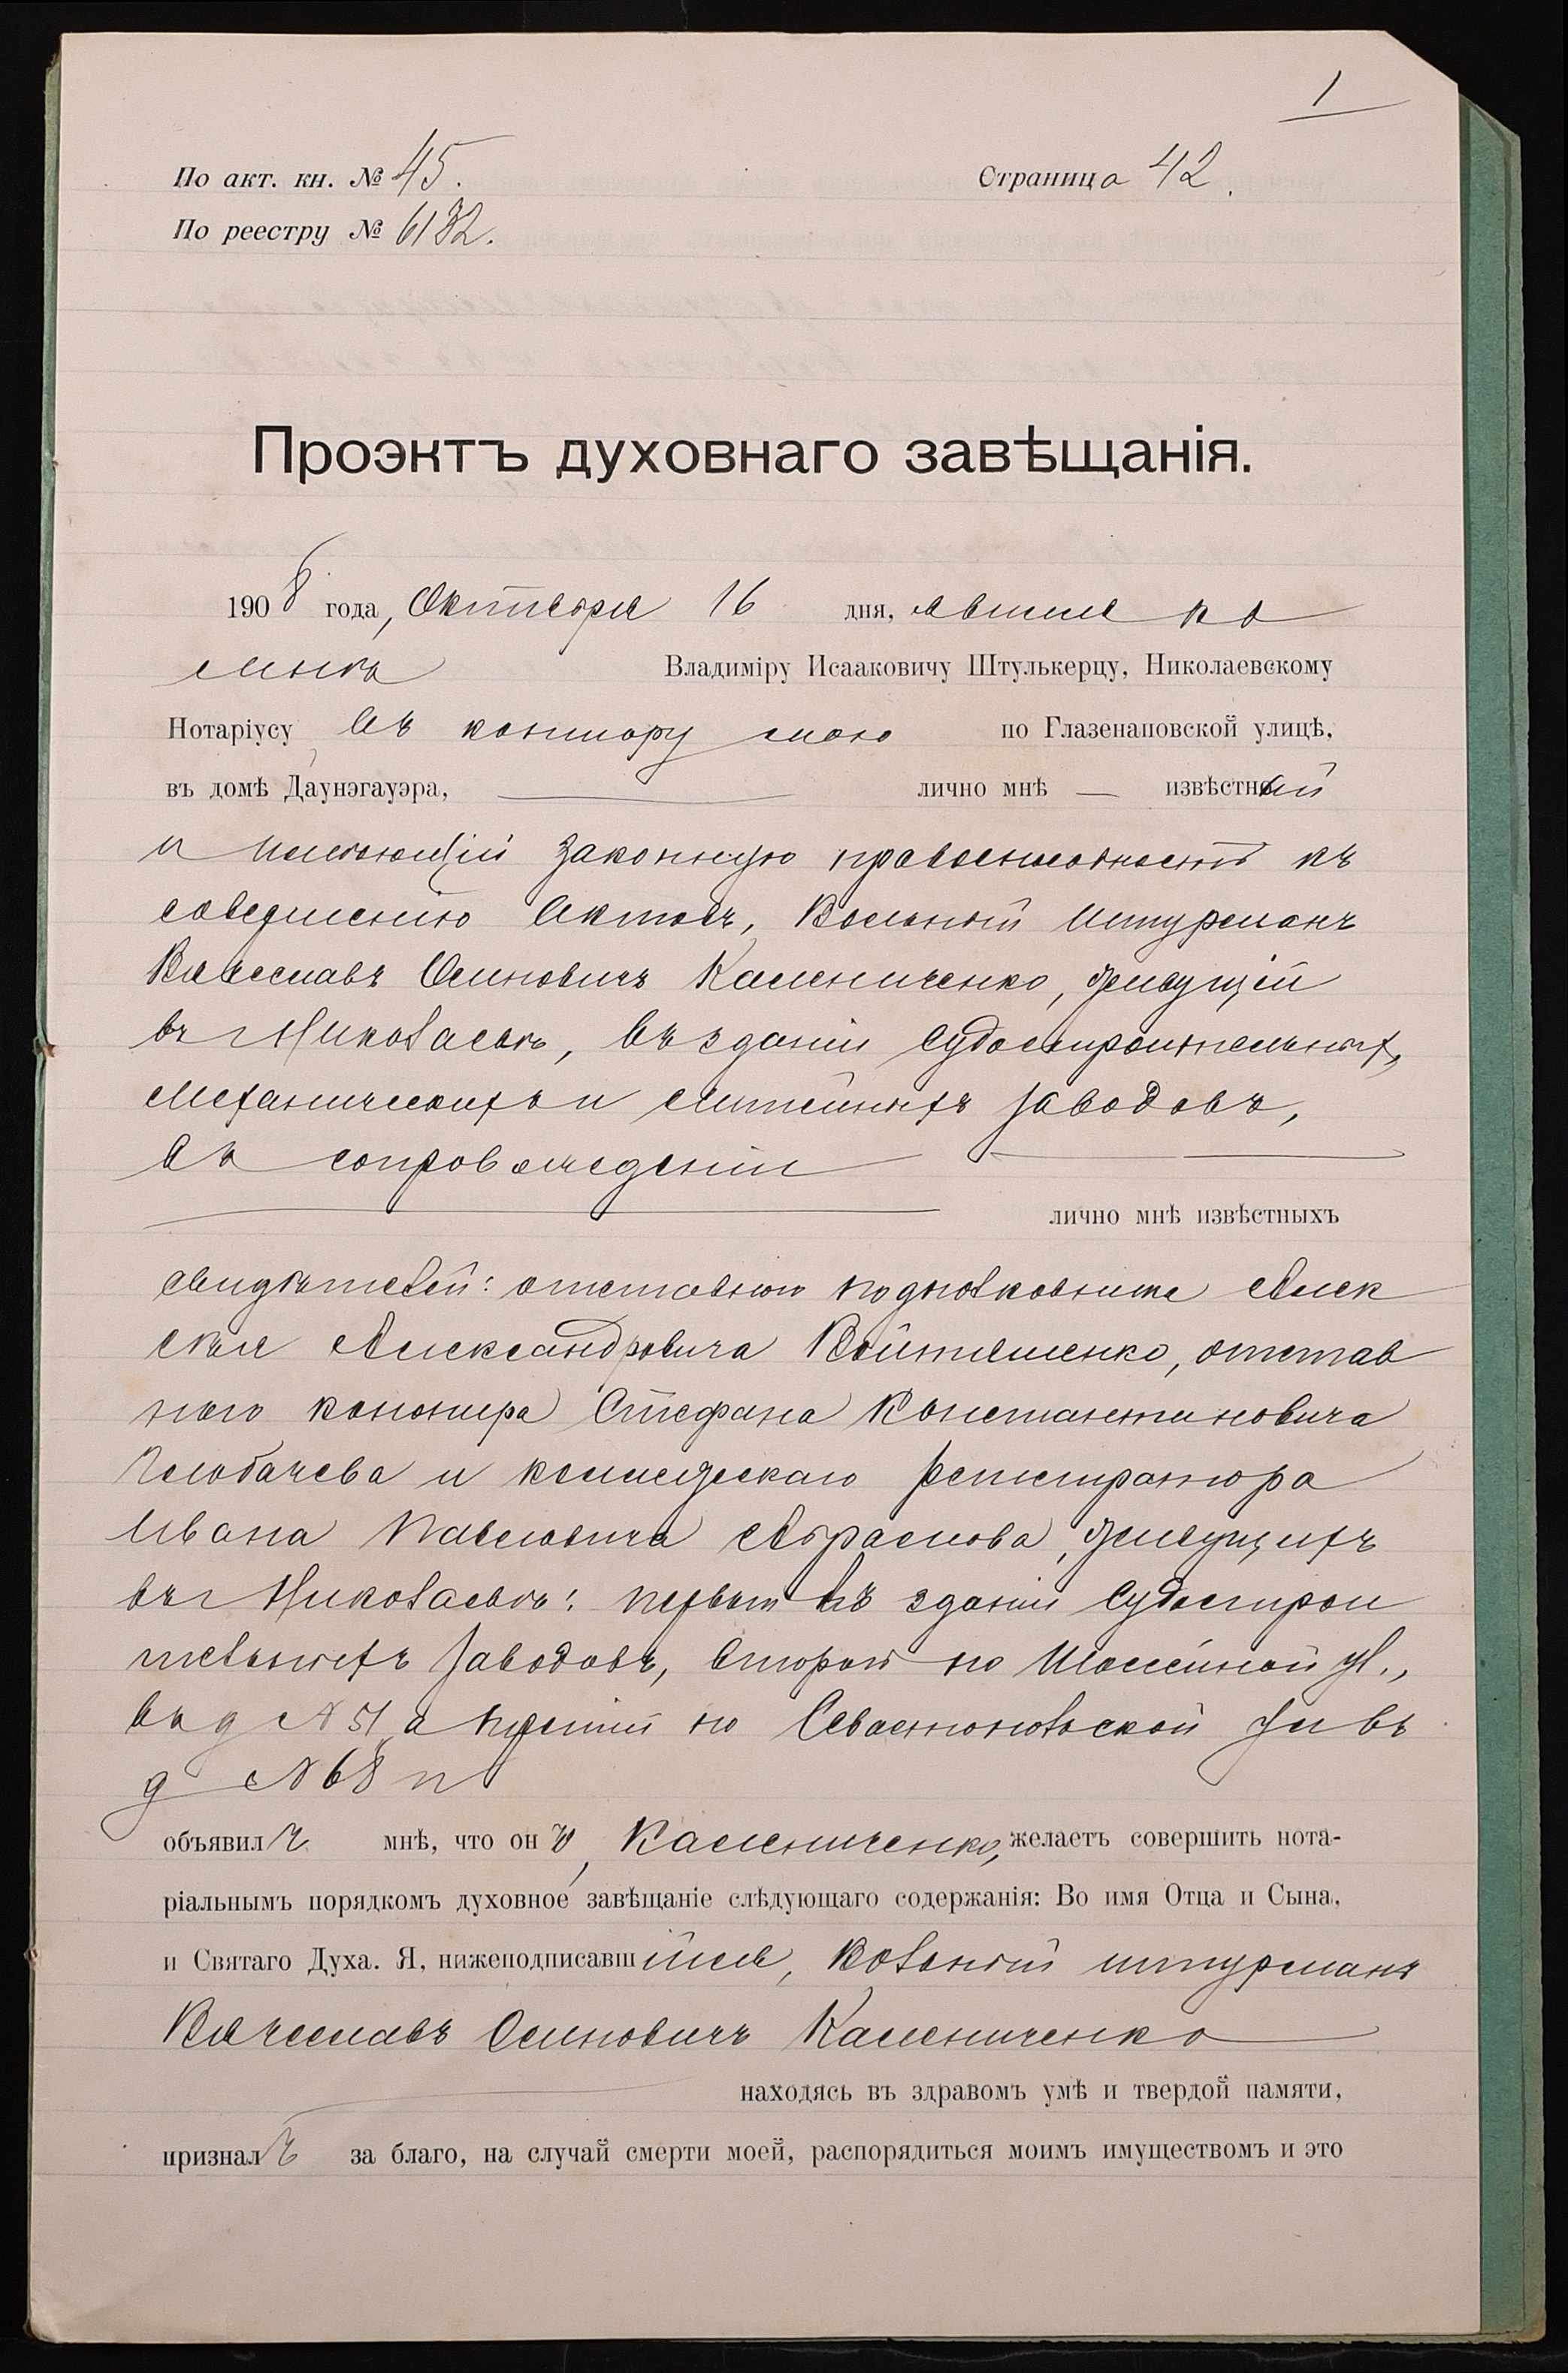 1
По акт. кн. № 45. Страница 42.
По реестру № 6132.
Проэктъ духовнаго завѣщанія.
1908 года, Октября 16 дня, явился ко
мнѣ Владиміру Исааковичу Штулькерцу, Николаевскому
Нотаріусу въ контору мою по Глазенаповской улицѣ,
въ домѣ Даунэгауэра, — лично мнѣ — извѣстный
и имѣющій законную правоспособность къ
совершенію Актовъ, Вольный Штурманъ
Вячеславъ Осиповичъ Камениченко, живущій
въ г Николаевѣ, въ зданіи Судостроительныхъ,
Механическихъ и Литейныхъ заводовъ,
въ сопровожденіи
лично мнѣ извѣстныхъ
свидѣтелей: отставного подполковника Алек
сѣя Александровича Войтяшенко, отстав
ного канонира Стефана Константиновича
Челобачева и коллежскаго регистратора
Ивана Павловича Абрамова, живущихъ
въ г Николаевѣ: первый въ зданіи Судострои
тельныхъ заводовъ, второй по Шоссейной ул.,
въ д № 51, а третій по Севастопольской ул въ
д № 68 и
объявилъ мнѣ, что онъ, Камениченко, желаетъ совершить нота-
ріальнымъ порядкомъ духовное завѣщаніе слѣдующаго содержанія: Во имя Отца и Сына,
и Святаго Духа. Я, нижеподписавшійся, Вольный штурманъ
Вячеславъ Осиповичъ Камениченко
находясь въ здравомъ умѣ и твердой памяти,
призналъ за благо, на случай смерти моей, распорядиться моимъ имуществомъ и это